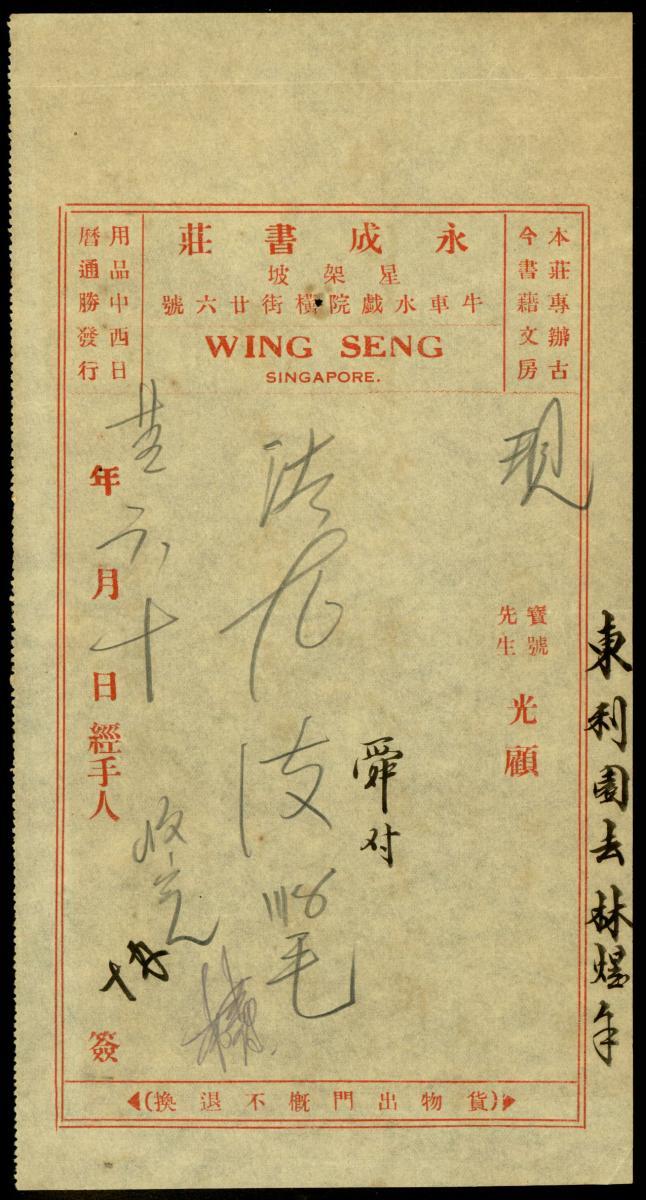 本莊專辦古
今書藉文房
永成書莊
星架坡
牛車水戲院橫街廿六號
WING SENG
SINGAPORE.
用品中西日
曆通勝發行
現
寶號
先生
光顧
東利園去林煜年
舜对
年六月十日經手人
簽
(貨物出門概不退換)